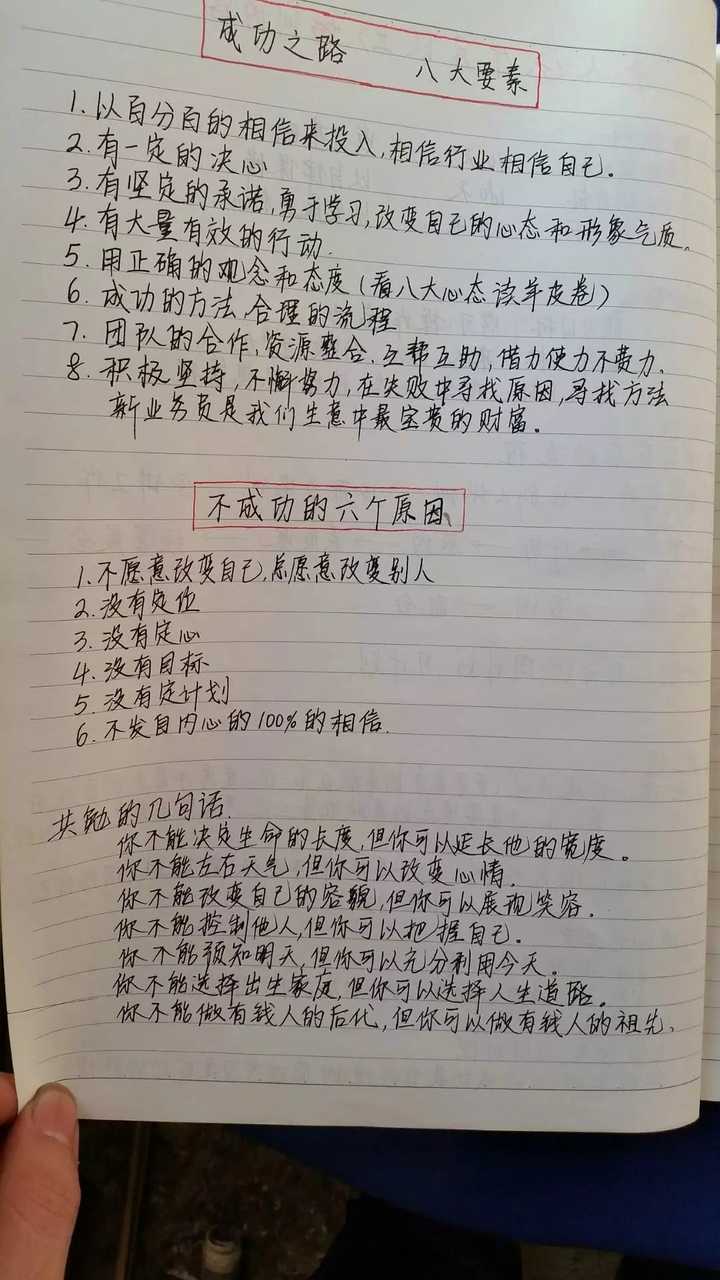 成功之路 八大要素
1.以百分百的相信来投入,相信行业相信自己.
2.有一定的决心
3.有坚定的承诺,勇于学习,改变自己的心态和形象气质。
4.有大量有效的行动.
5.用正确的观念和态度(看八大心态读羊皮卷)
6.成功的方法,合理的流程
7.团队的合作,资源整合.互帮互助,借力使力不费力.
8.积极坚持,不懈努力,在失败中寻找原因,寻找方法
新业务员是我们生意中最宝贵的财富。
不成功的六个原因
1.不愿意改变自己,总愿意改变别人
2.没有定位
3.没有定心
4.没有目标
5.没有定计划
6.不发自内心的100%的相信.
共勉的几句话.
你不能决定生命的长度,但你可以延长他的宽度。
你不能左右天气,但你可以改变心情.
你不能改变自己的容貌,但你可以展现笑容.
你不能控制他人,但你可以把握自己.
你不能预知明天,但你可以充分利用今天。
你不能选择出生家庭,但你可以选择人生道路。
你不能做有钱人的后代,但你可以做有钱人的祖先.